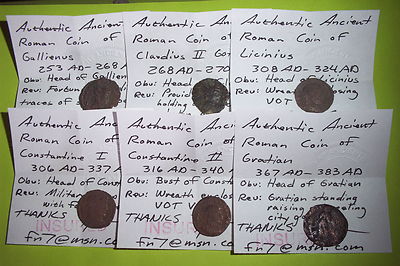 Authentic Ancient
Roman Coin of
Gallienus
253 AD - 268 A
Obv: Head of Gallien
Rev: Fortun
traces of s
Authentic Ancient
Roman Coin of
Claudius II Go
268 AD - 270
Obv: Head of
Rev: Provid
holding
Authentic Ancient
Roman Coin of
Licinius
308 AD - 324 AD
Obv: Head of Licinius
Rev: Wreath losing
VOT
Authentic Ancient
Roman Coin of
Constantine I
306 AD - 337 A
Obv: Head of Const
Rev: Milita
with
THANKS
INSU
fn7@msn.com
Authentic Ancient
Roman Coin of
Constantine II
316 AD - 340
Obv: Bust of Consta
Rev: Wreath enclos
VOT
THANKS
INSU
fn7@msn.com
Authentic Ancient
Roman Coin of
Gratian
367 AD - 383 AD
Obv: Head of Gratian
Rev: Gratian standing
raising eeling
city g
THANKS
INSU
fn7@msn.com